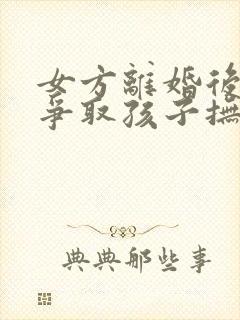 女方離婚後
爭取孩子撫
典典那些事